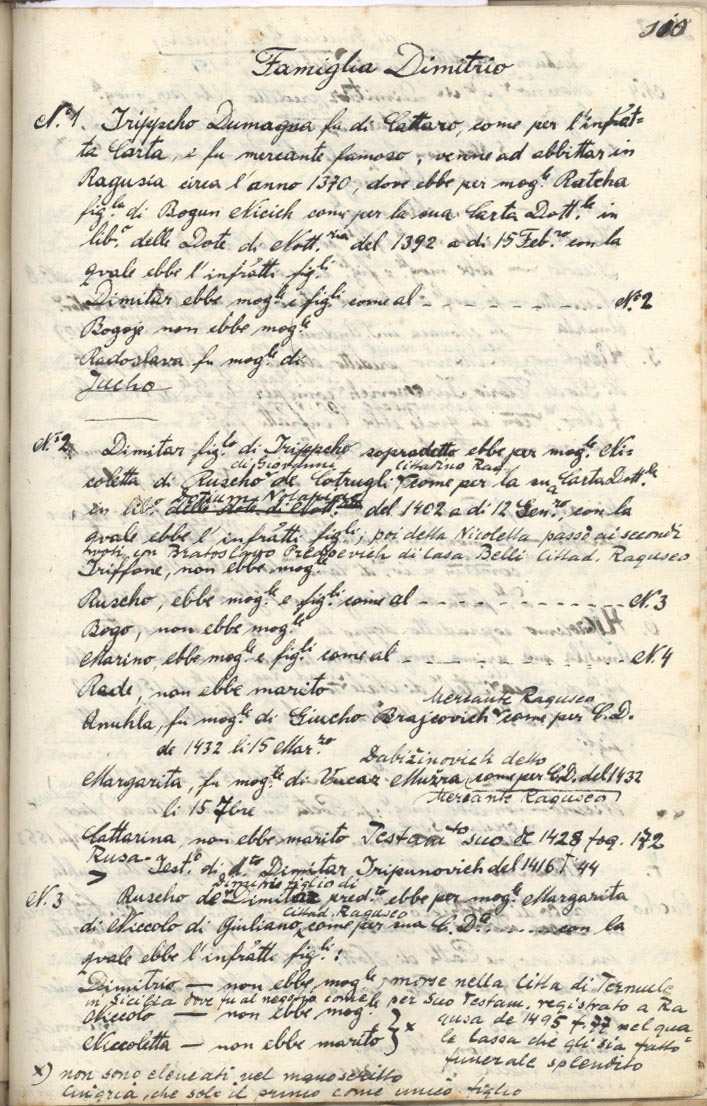 100
Famiglia Dimitrio
N.º 1. Trippcho Dumagna fu di Cattaro, come per l'infrat-
ta Carta, e fu mercante famoso, venne ad abbittar in
Ragusia circa l'anno 1370, dove ebbe per mog.le Ratcha
fig.la di Bogun Nicich come per la sua Carta Dott.le in
lib.o delle Dote di Nott.ria del 1392 a di 15 Feb.ro con la
quale ebbe l'infratti fig.li
Dimitar ebbe mog.le e fig.li come al - - - - - - - - - N.º 2
Bogoje non ebbe mog.le
Radoslava fu mog.le di
Jucho
N.º 2 Dimitar fig.lo di Trippcho sopradetto ebbe per mog.le Ni-
di Giovanni Cittadino Rag.
coletta di Ruscho de Cotrugli come per la sua Carta Dott.le
Dotium Notariae
in lib.o delle dote di Nott.ria del 1402 a di 12 Gen.ro con la
quale ebbe l'infratti fig.li, poi detta Nicoletta passò ai secondi
voti con Bratos Predoevich di Casa Belli Cittad. Raguseo
Triffone, non ebbe mog.le
Ruscho, ebbe mog.le e fig.li come al - - - - - - - - - N.3
Bogo, non ebbe mog.le
Marino, ebbe mog.le e fig.li come al - - - - - - - - - N.4
Rade, non ebbe marito
Mercante Raguseo
Anuhla, fu mog.le di Giucho Brajcovich come per C.D.
de 1432 li 15 Mar.zo
Dabižinovich detto
Margarita, fu mog.le di Vucaz Mužra come per C.D. del 1432
Mercante Raguseo
li 15 7bre
Cattarina, non ebbe marito Testam.to suo de 1428 fog. 172
Rusa-
Test.o di d.to Dimitar Tripunovich del 1416 T 44
Dimitrio figlio di
N.3 Ruscho de Dimitar pred.to ebbe per mog.le Margarita
Cittad. Raguseo
di Niccolo di Giuliano, come per sua C.D.le ........ con la
quale ebbe l'infratti fig.li:
Dimitrio — non ebbe mog.le, morse nella Citta di Termule
in Sicilia dove fu al negozio come per suo Testam. registrato a Ra
Niccolo — non ebbe mog.le gusa de 1495 f. 77 nel qua
Niccoletta — non ebbe marito } x le lassa che gli sia fatto
funerale splendito
x) non sono elencati nel manoscritto
, che solo il primo come unico figlio